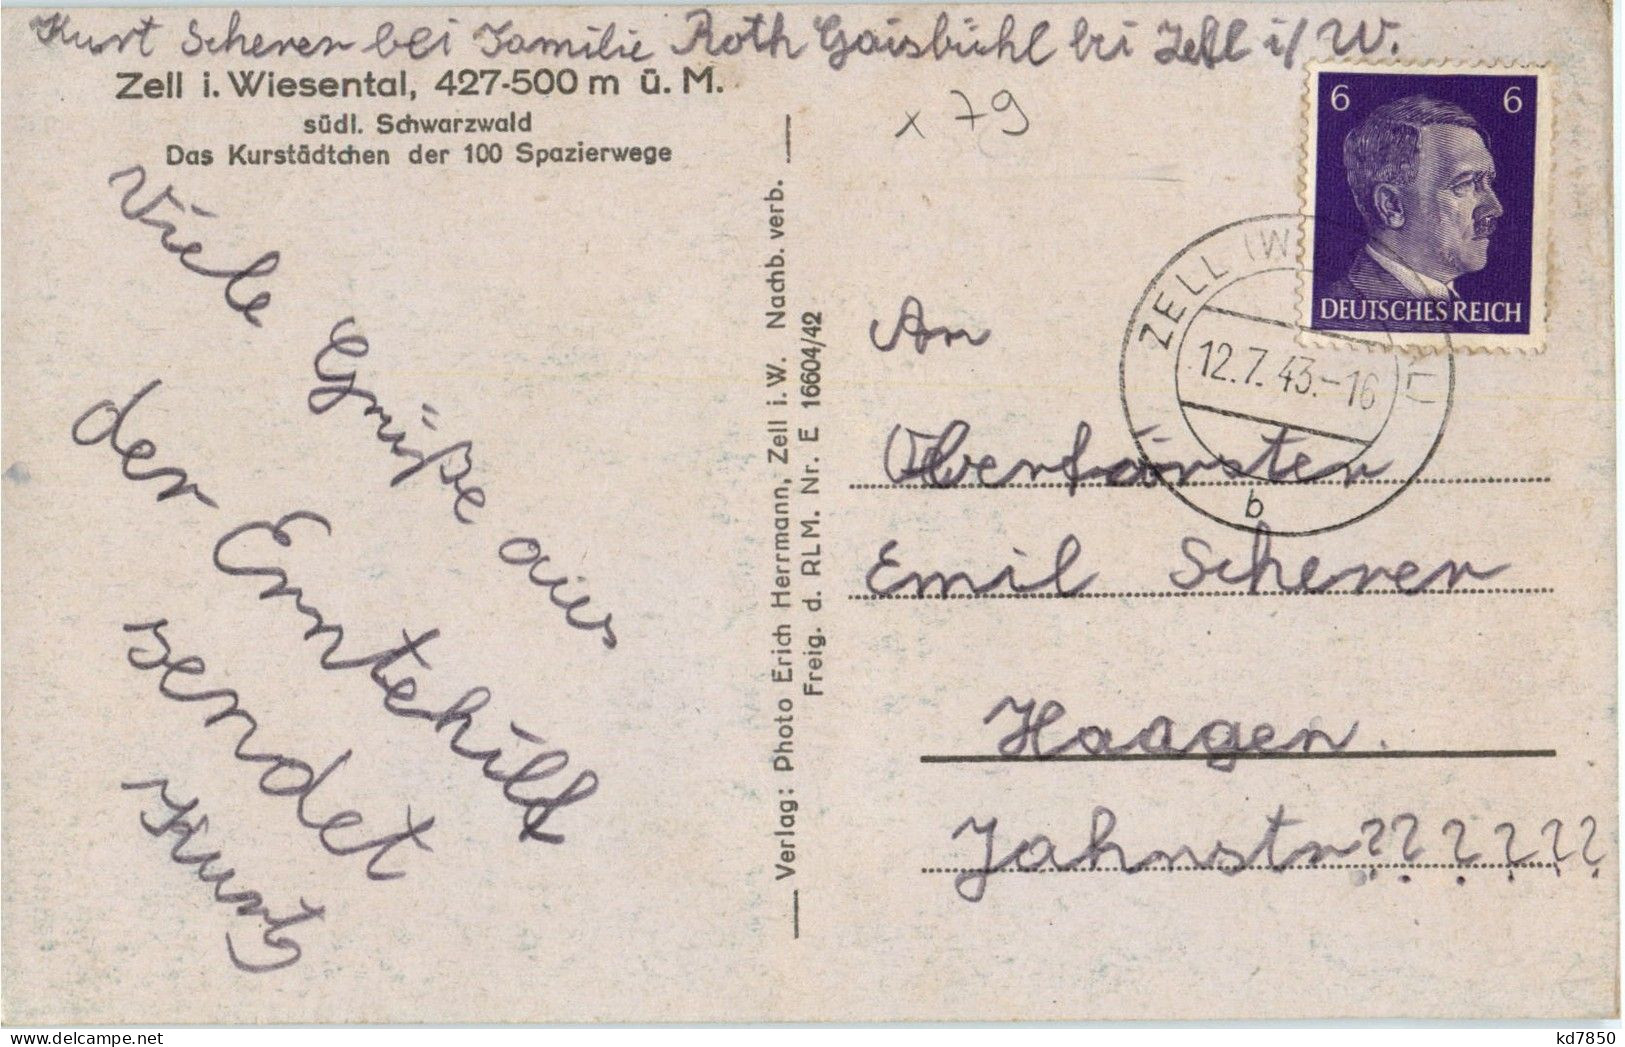 Kurt Scherer bei Familie Roth Gaisbühl bei Zell i/W.
Zell i. Wiesental, 427-500 m ü. M.
südl. Schwarzwald
Das Kurstädtchen der 100 Spazierwege
x 79
Viele Grüße aus
der Erntehilf
sendet
Kurt
Verlag: Photo Erich Herrmann, Zell i. W. Nachb. verb.
Freig. d. RLM. Nr. E 16604/42
6 6
DEUTSCHES REICH
ZELL (W
12.7.43.-16
b
An
Oberförster
Emil Scherer
Haagen.
Jahnstr???????
kd7850